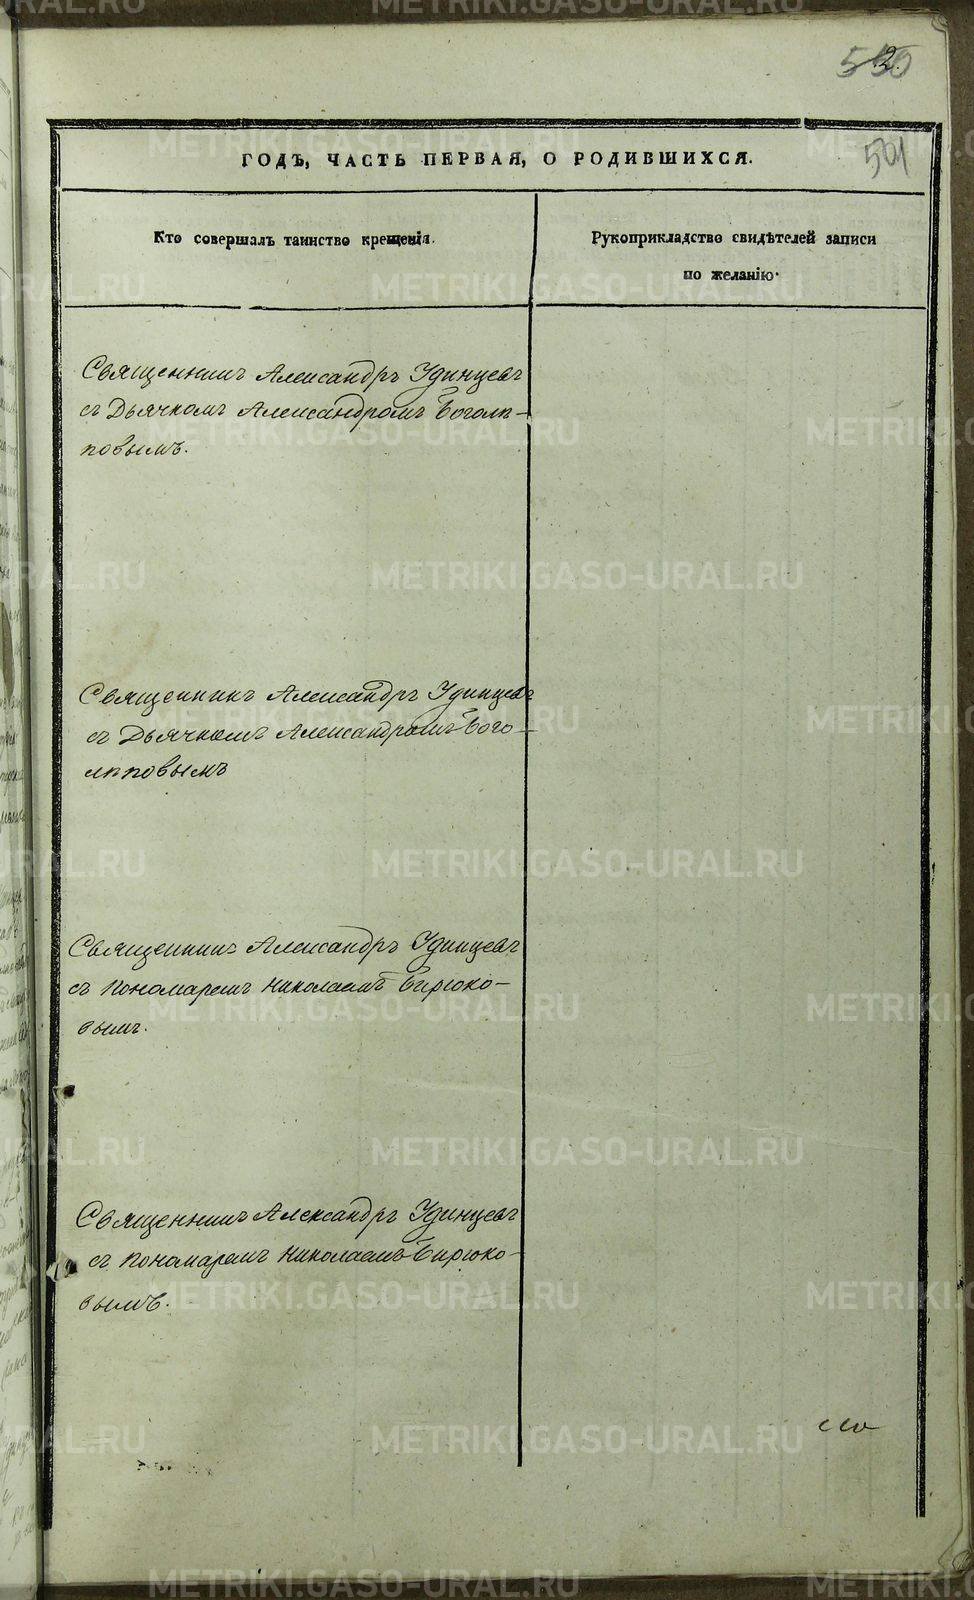 550
2.
501
ГОДЪ, ЧАСТЬ ПЕРВАЯ, О РОДИВШИХСЯ.
Кто совершалъ таинство крещенія.
Рукоприкладство свидѣтелей записи
по желанію.
Священникъ Александръ Удинцевъ
съ Дьячкомъ Александромъ Боголѣ-
повымъ.
Священникъ Александръ Удинцевъ
съ Дьячкомъ Александромъ Бого-
лѣповымъ
Священникъ Александръ Удинцевъ
съ Пономаремъ Николаемъ Бирюко-
вымъ.
Священникъ Александръ Удинцевъ
съ Пономаремъ Николаемъ Бирюко-
вымъ.
METRIKI.GASO-URAL.RU